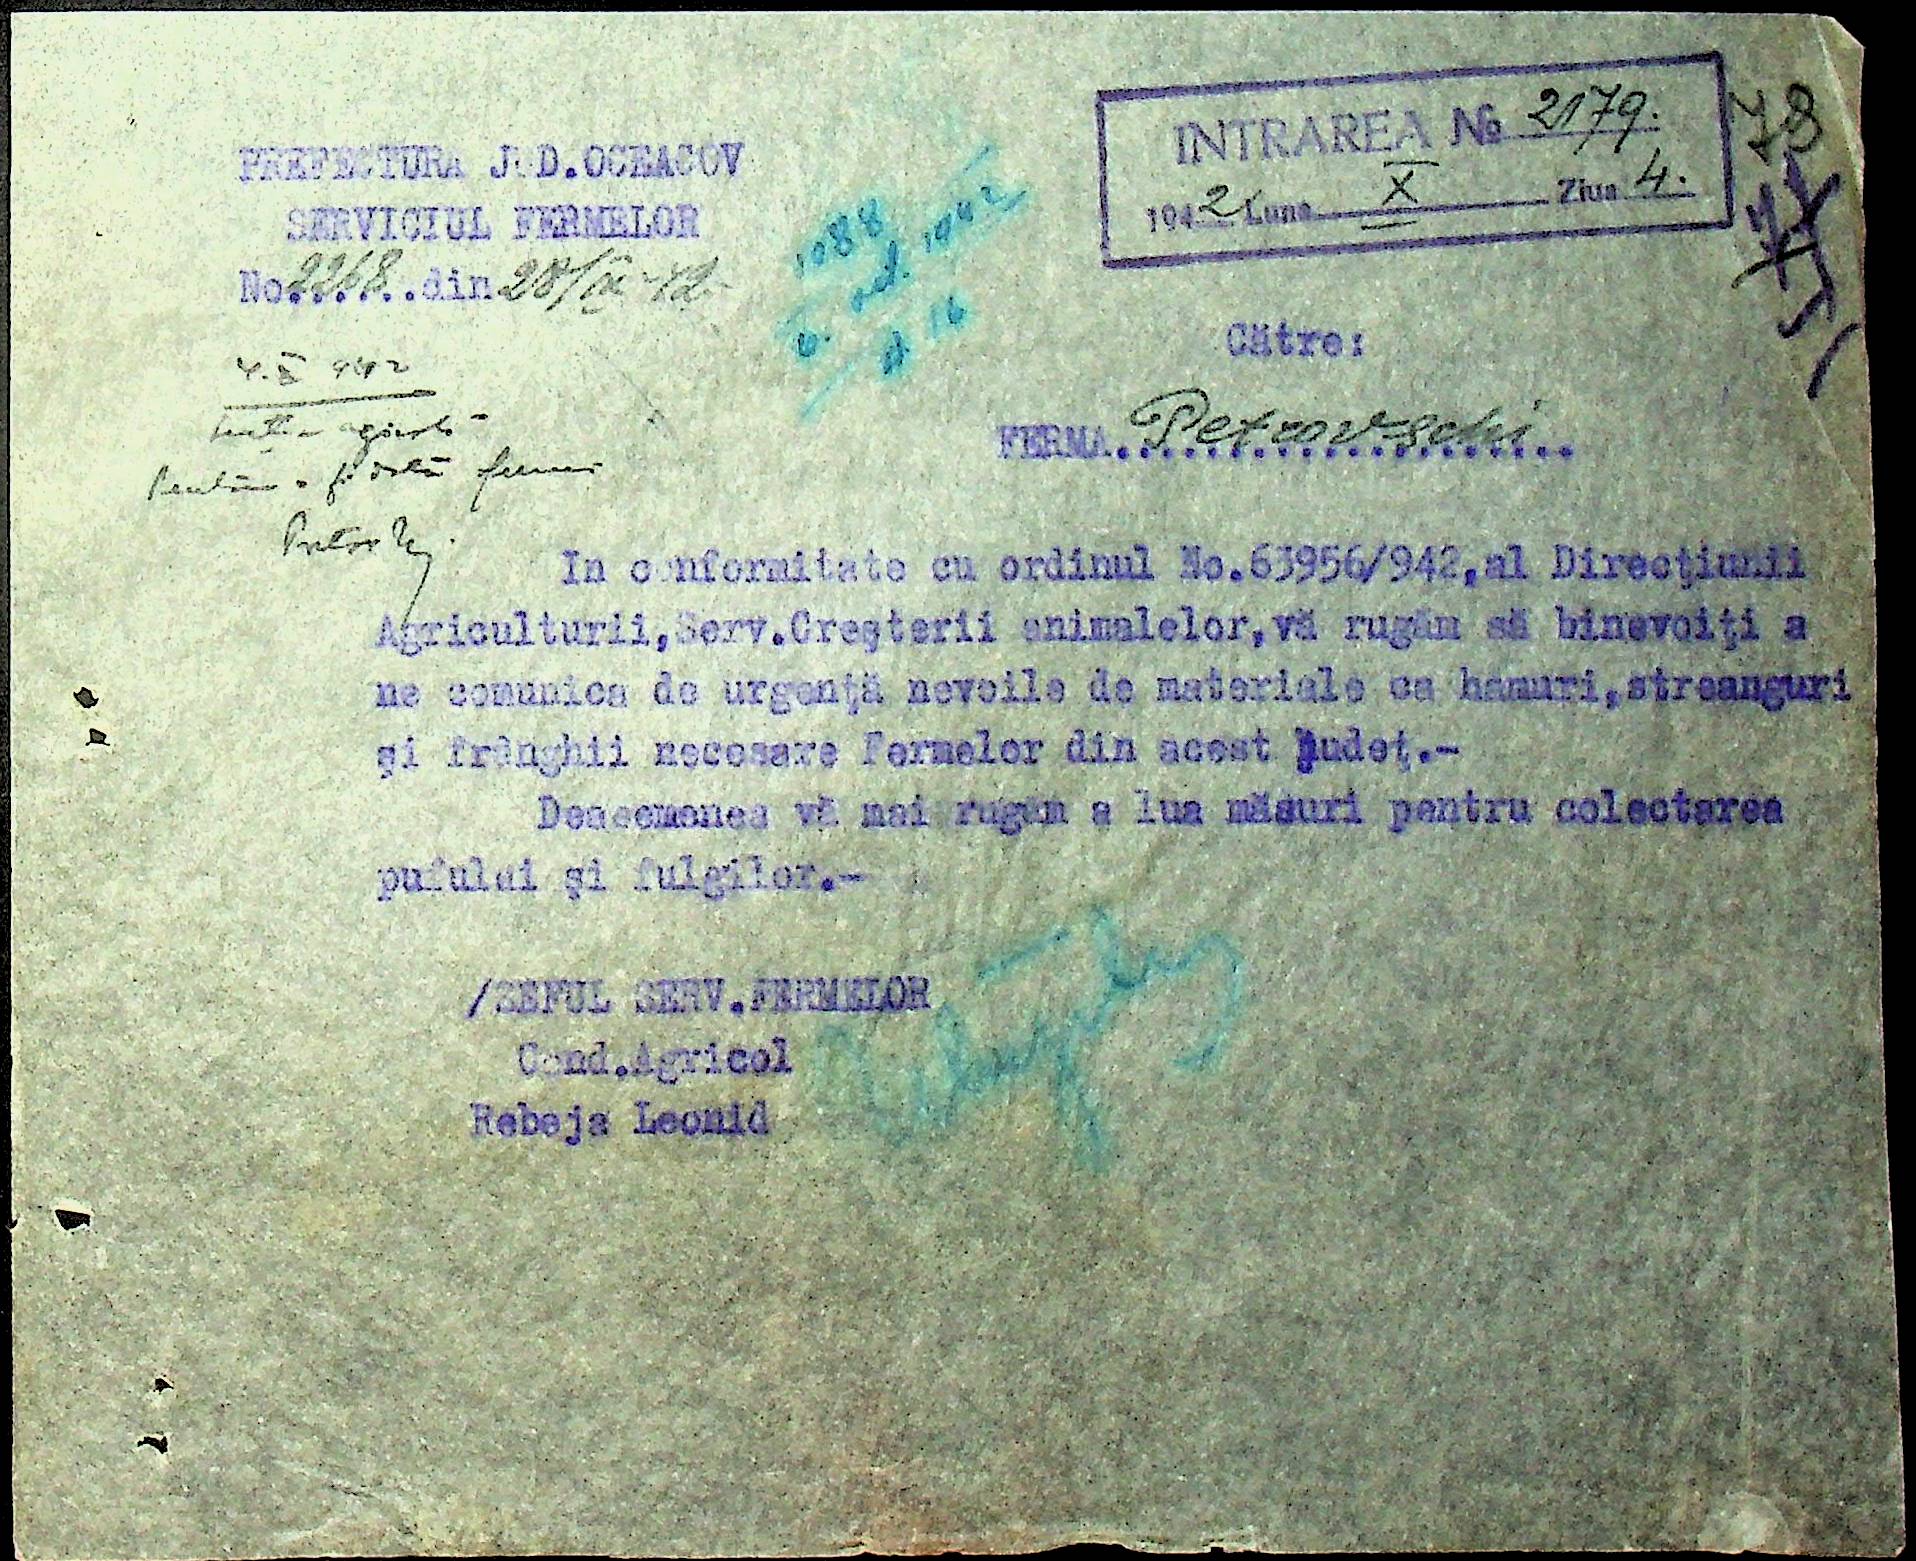 INTRAREA No 2179.
1942 Luna X Ziua 4.
78
PREFECTURA JUD.OCEACOV
SERVICIUL FERMELOR
No.2268..din 28/IX-42
1088
1942
4.X 942
Către:
FERMA Petrovschi
In conformitate cu ordinul No.63956/942,al Direcţiunii
Agriculturii,Serv.Creşterii animalelor,vă rugăm să binevoiţi a
ne comunica de urgenţă nevoile de materiale ca hamuri,streanguri
şi frânghii necesare Fermelor din acest judeţ.-
Deasemenea vă mai rugăm a lua măsuri pentru colectarea
pufului şi fulgilor.-
/SEFUL SERV.FERMELOR
Cond.Agricol
Rebeja Leonid